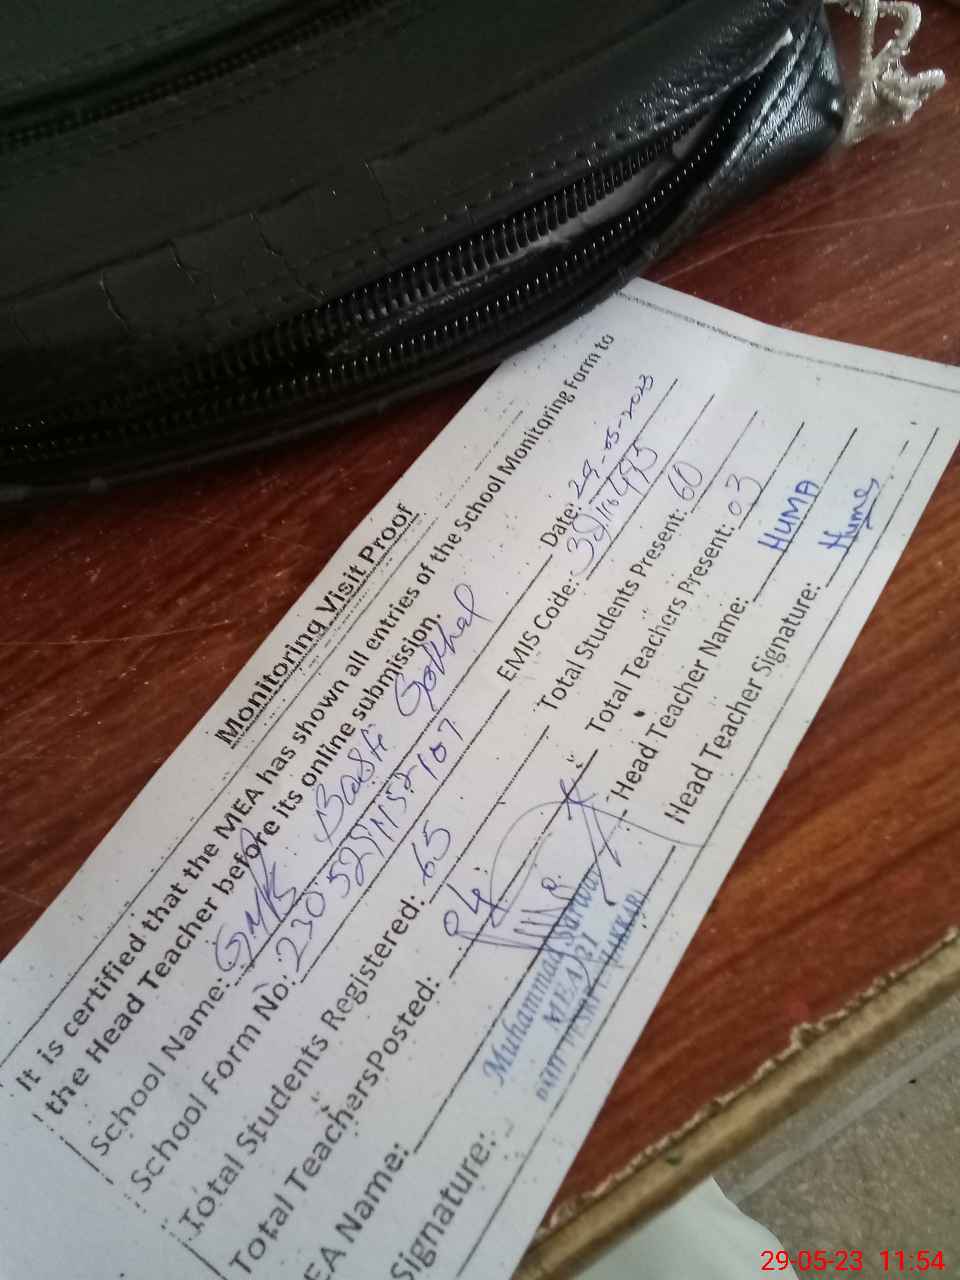 Monitoring Visit Proof
It is certified that the MEA has shown all entries of the School Monitoring Form to
the Head Teacher before its online submission.
School Name: GMPS Basti Gokhal Date: 29-05-2023
School Form No: EMIS Code:
Total Students Registered: 65 Total Students Present: 60
Total TeachersPosted: 04 Total Teachers Present: 03
EA Name: Head Teacher Name: HUMA
Signature: Head Teacher Signature: Huma
Muhammad Sarwar
MEA
29-05-23 11:54